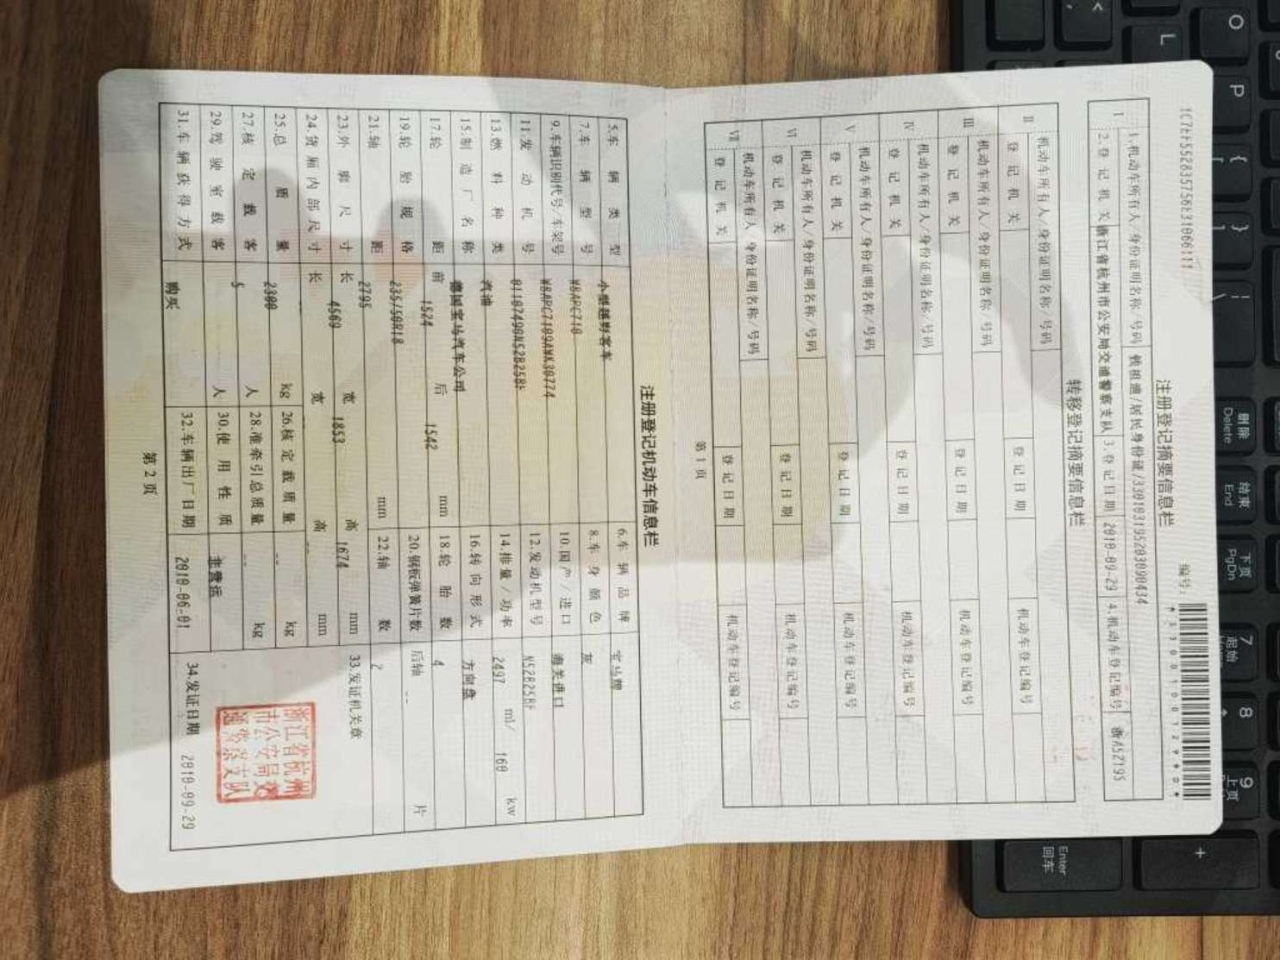 注册登记摘要信息栏
编号:
1.机动车所有人/身份证明名称/号码
2.登记机关 浙江省杭州市公安局交通警察支队 3.登记日期 2010-09-29 4.机动车登记编号 浙A52T95
转移登记摘要信息栏
II 机动车所有人/身份证明名称/号码
登记机关 登记日期 机动车登记编号
III 机动车所有人/身份证明名称/号码
登记机关 登记日期 机动车登记编号
IV 机动车所有人/身份证明名称/号码
登记机关 登记日期 机动车登记编号
V 机动车所有人/身份证明名称/号码
登记机关 登记日期 机动车登记编号
VI 机动车所有人/身份证明名称/号码
登记机关 登记日期 机动车登记编号
VII 机动车所有人/身份证明名称/号码
登记机关 登记日期 机动车登记编号
第1页
注册登记机动车信息栏
5.车辆类型 小型越野客车 6.车辆品牌 宝马牌
7.车辆型号 WBAPC710 8.车身颜色 灰
9.车辆识别代号/车架号 10.国产/进口 海关进口
11.发动机号 12.发动机型号 N52B25BF
13.燃料种类 汽油 14.排量/功率 2497 ml/ 160 kw
15.制造厂名称 德国宝马汽车公司 16.转向形式 方向盘
17.轮距 前 1524 后 1542 mm 18.轮胎数 4
19.轮胎规格 235/50R18 20.钢板弹簧片数 后轴 -- 片
21.轴距 2795 mm 22.轴数 2
23.外廓尺寸 长 4569 宽 1853 高 1674 mm
24.货厢内部尺寸 长 宽 高 mm
25.总质量 2300 kg 26.核定载质量 -- kg
27.核定载客 5 人 28.准牵引总质量 -- kg
29.驾驶室载客 人 30.使用性质 非营运
31.车辆获得方式 购买 32.车辆出厂日期 2010-06-01
33.发证机关章
浙江省杭州
市公安局交
通警察支队
34.发证日期 2010-09-29
第2页
O
P
L
删除
Delete
结束
End
下页
PgDn
7
起始
8
9
上页
Enter
回车
+